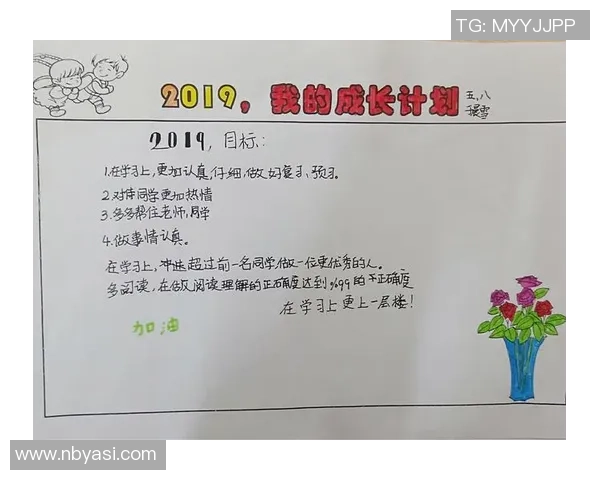 TG: MYYJJPP
2019，我的成长计划
五,八
2019，目标：
1.在学习上,更加认真,仔细,做好复习、预习。
2.对待同学更加热情
3.多多帮住老师,同学
4.做事情认真。
在学习上，冲进超过前一名同学,做一位更优秀的人。
多阅读，在做阅读理解的正确度达到%99的不正确度
在学习上更上一层楼！
加油
www.nbyasi.com